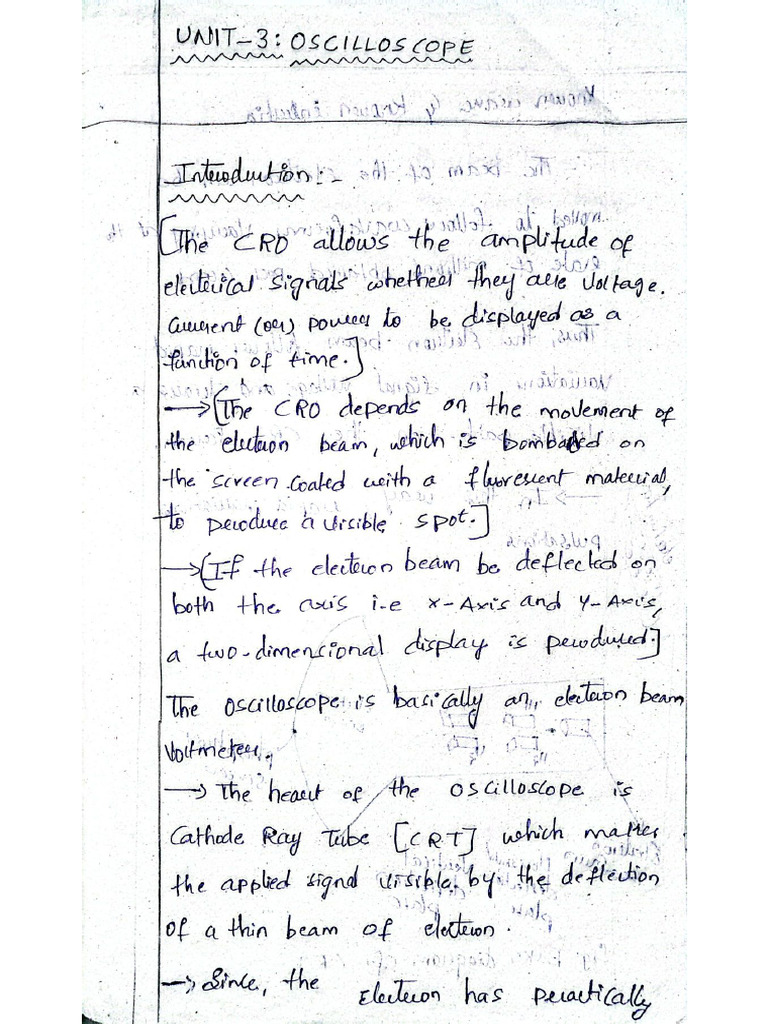 UNIT-3: OSCILLOSCOPE
Introduction:-
[The CRO allows the amplitude of
electrical signals whether they are voltage.
current (or) power to be displayed as a
function of time.]
→[The CRO depends on the movement of
the electron beam, which is bombarded on
the screen coated with a fluorescent material,
to produce a visible spot.]
→[If the electron beam be deflected on
both the axis i.e x-Axis and y-Axis,
a two-dimensional display is produced.]
The oscilloscope is basically an electron beam
voltmeter.
→ The heart of the oscilloscope is
Cathode Ray Tube [CRT] which makes
the applied signal visible by the deflection
of a thin beam of electron.
→ Since, the Electron has practically